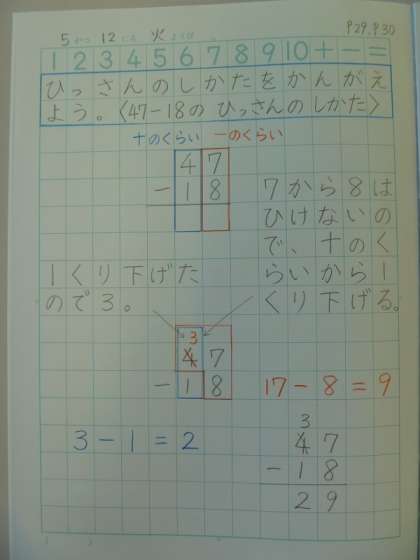 5がつ12にち 火ようび
P29.P30
1 2 3 4 5 6 7 8 9 10 + − =
ひっさんのしかたをかんがえ
よう。〈47−18のひっさんのしかた〉
十のくらい 一のくらい
4 7
− 1 8
7から8は
ひけないの
で、十のく
らいから1
くり下げる。
1くり下げた
ので3。
3
4 7
− 1 8
17−8=9
3−1=2
3
4 7
− 1 8
2 9